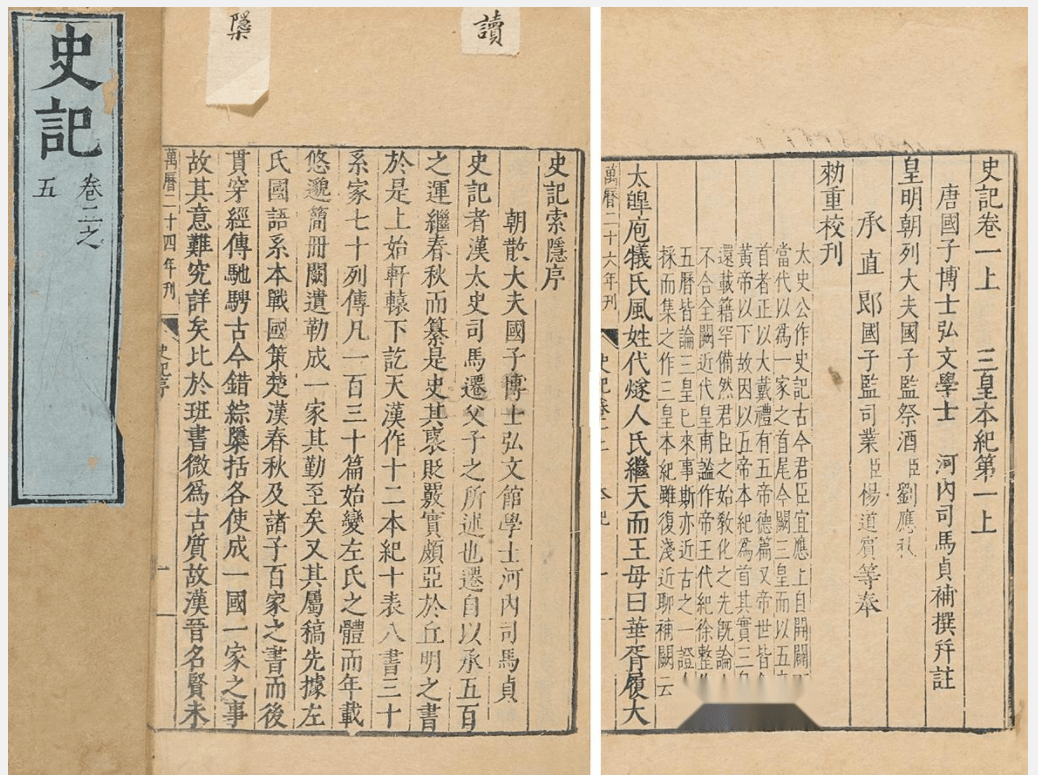 史記
卷二之
五
讀
檃
史記索隱序
朝散大夫國子博士弘文館學士河內司馬貞
史記者漢太史司馬遷父子之所述也遷自以承五百
之運繼春秋而纂是史其襃貶覈實頗亞於丘明之書
於是上始軒轅下訖天漢作十二本紀十表八書三十
系家七十列傳凡一百三十篇始變左氏之體而年載
悠邈簡冊闕遺勒成一家其勤至矣又其屬稿先據左
氏國語系本戰國策楚漢春秋及諸子百家之書而後
貫穿經傳馳騁古今錯綜檃括各使成一國一家之事
故其意難究詳矣比於班書微爲古質故漢晉名賢未
萬曆二十四年刊 史記序 一
史記卷一上 三皇本紀第一上
唐國子博士弘文學士 河內司馬貞補撰幷註
皇明朝列大夫國子監祭酒臣劉應秋
承直郎國子監司業臣楊道賓等奉
勑重校刊
太史公作史記古今君臣宜應上自開闢
當代以爲一家之首尾今闕三皇而以五
首者正以大戴禮有五帝德篇又帝世皆
黃帝以下故因以五帝本紀爲首其實三
還載籍罕備然君臣之始敎化之先旣論
不合全闕近代皇甫謐作帝王代紀徐整
五曆皆論三皇已來事斯亦近古之一證
採而集之作三皇本紀雖復淺近聊補闕云
太皥庖犧氏風姓代燧人氏繼天而王母曰華胥履大
萬曆二十六年刊 史記卷一上 本紀 一